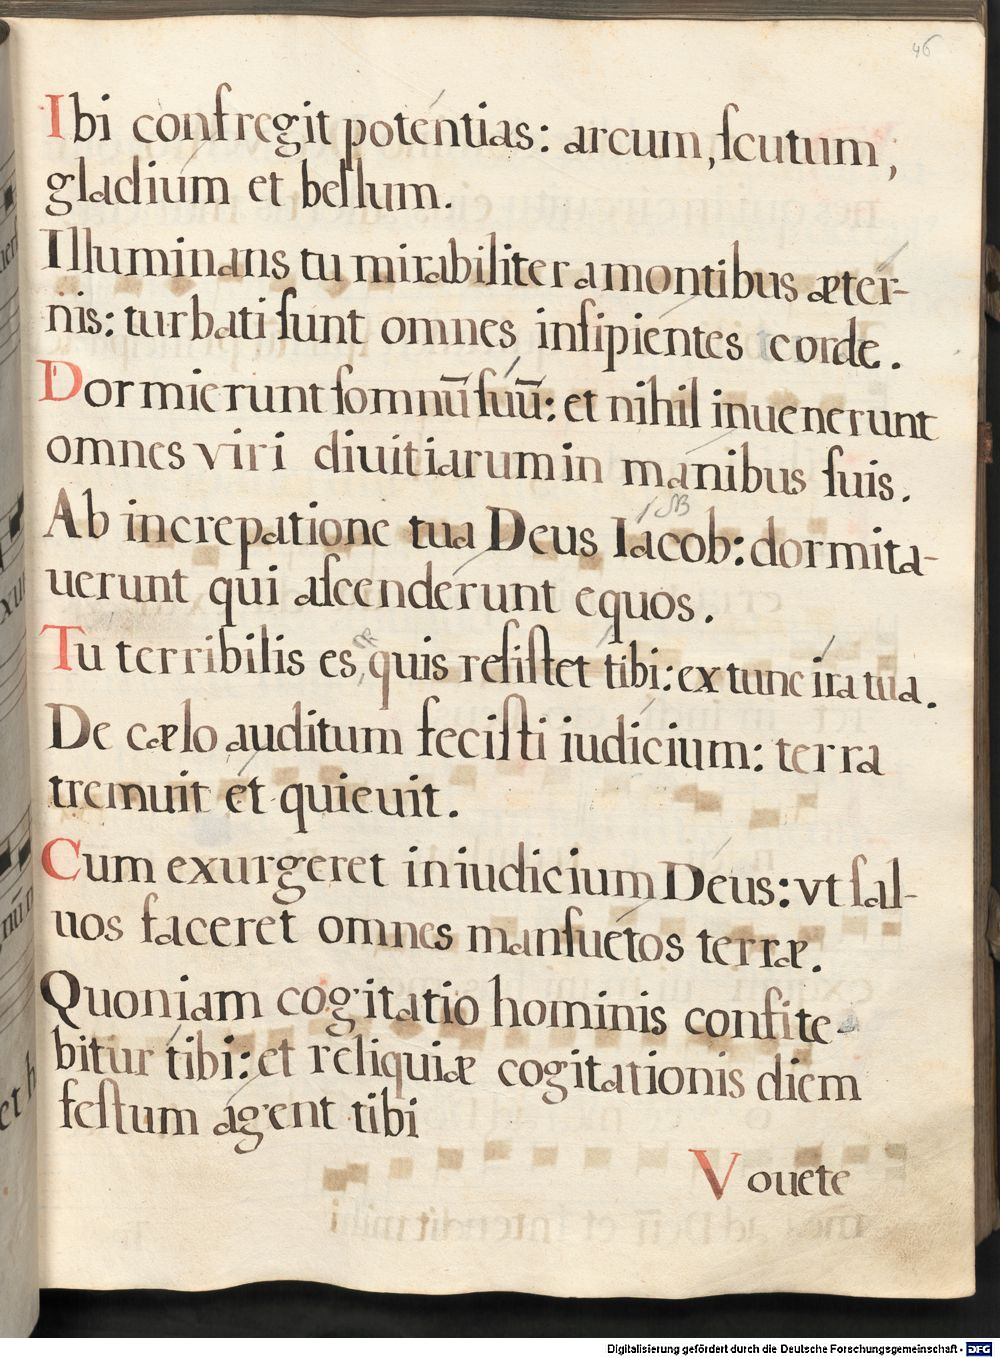 46
Ibi confregit potentias: arcum, ſcutum,
gladium et bellum.
Illuminans tu mirabiliter a montibus æter-
nis: turbati ſunt omnes inſipientes corde.
Dormierunt ſomnū ſuū: et nihil inuenerunt
omnes viri diuitiarum in manibus ſuis.
Ab increpatione tua Deus Iacob: dormita-
uerunt qui aſcenderunt equos.
Tu terribilis es, quis reſiſtet tibi: ex tunc ira tua.
De cælo auditum feciſti iudicium: terra
tremuit et quieuit.
Cum exurgeret in iudicium Deus: vt ſal-
uos faceret omnes manſuetos terræ.
Quoniam cogitatio hominis confite-
bitur tibi: et reliquiæ cogitationis diem
feſtum agent tibi
Vouete
Digitalisierung gefördert durch die Deutsche Forschungsgemeinschaft - DFG